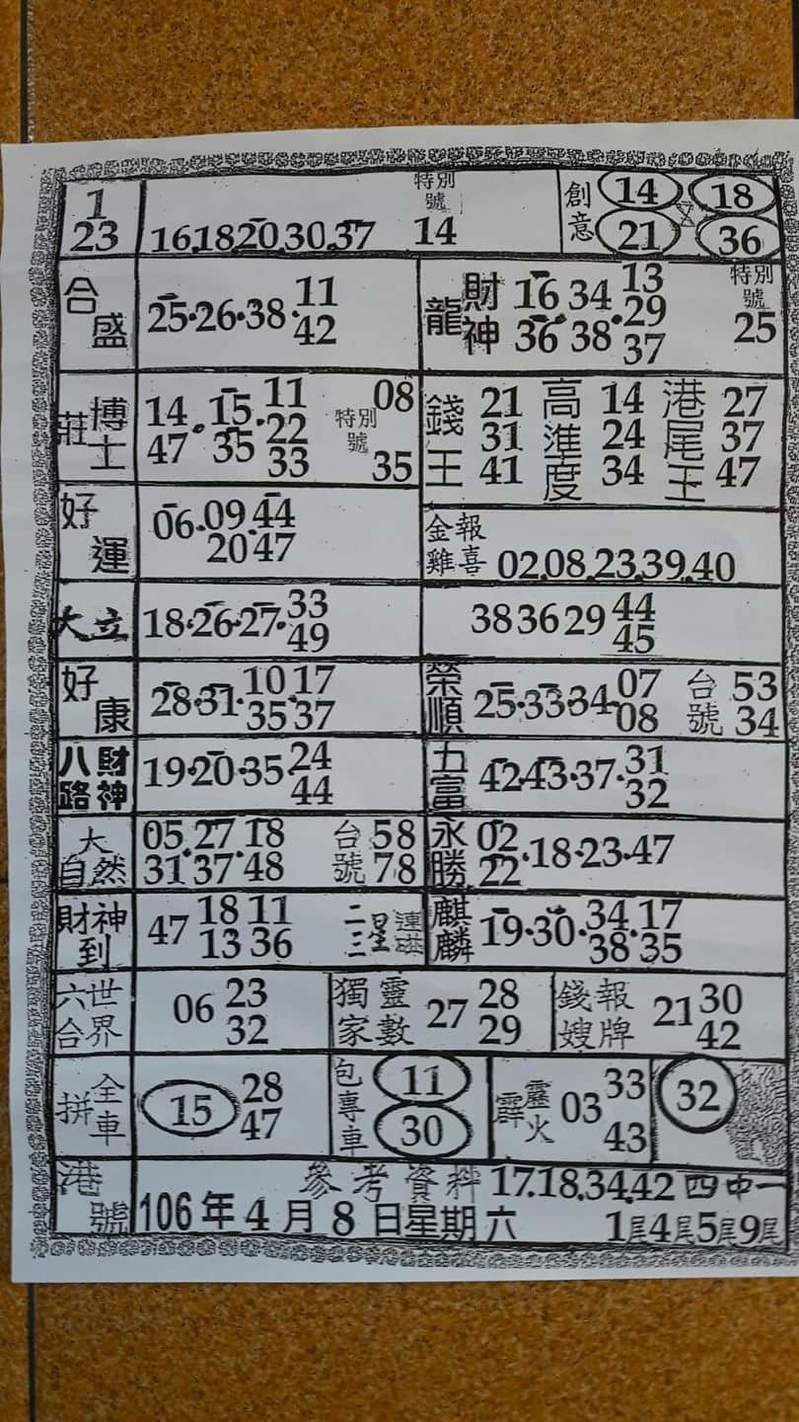 1
23
16.18.20.30.37
特別號
14
創意
14 18
21 36
合盛
25.26.38.
11
42
龍財神
16 34 13
36.38.29
37
特別號
25
莊博士
14 15 11
47.35.22
33
特別號
08
35
錢王
21
31
41
高準度
14
24
34
港尾王
27
37
47
好運
06.09.44
20 47
金雞報喜
02.08.23.39.40
大立
18.26.27.
33
49
38 36 29
44
45
好康
28.31.10.17
35 37
榮順
25.33.34.
07
08
台號
53
34
八路財神
19.20.35.
24
44
五富
42.43.37.
31
32
大自然
05.27.18
31.37.48
台號
58
78
永勝
02
22
.18.23.47
財神到
47
18 11
13 36
二三星連碰
麒麟
19.30.34.17
38 35
六合世界
06
23
32
獨家靈數
27
28
29
錢嫂報牌
21
30
42
拼全車
15
28
47
包專車
11
30
霹靂火
03
33
43
32
港號
參考資料
17.18.34.42 四中一
106年4月8日星期六
1尾4尾5尾9尾